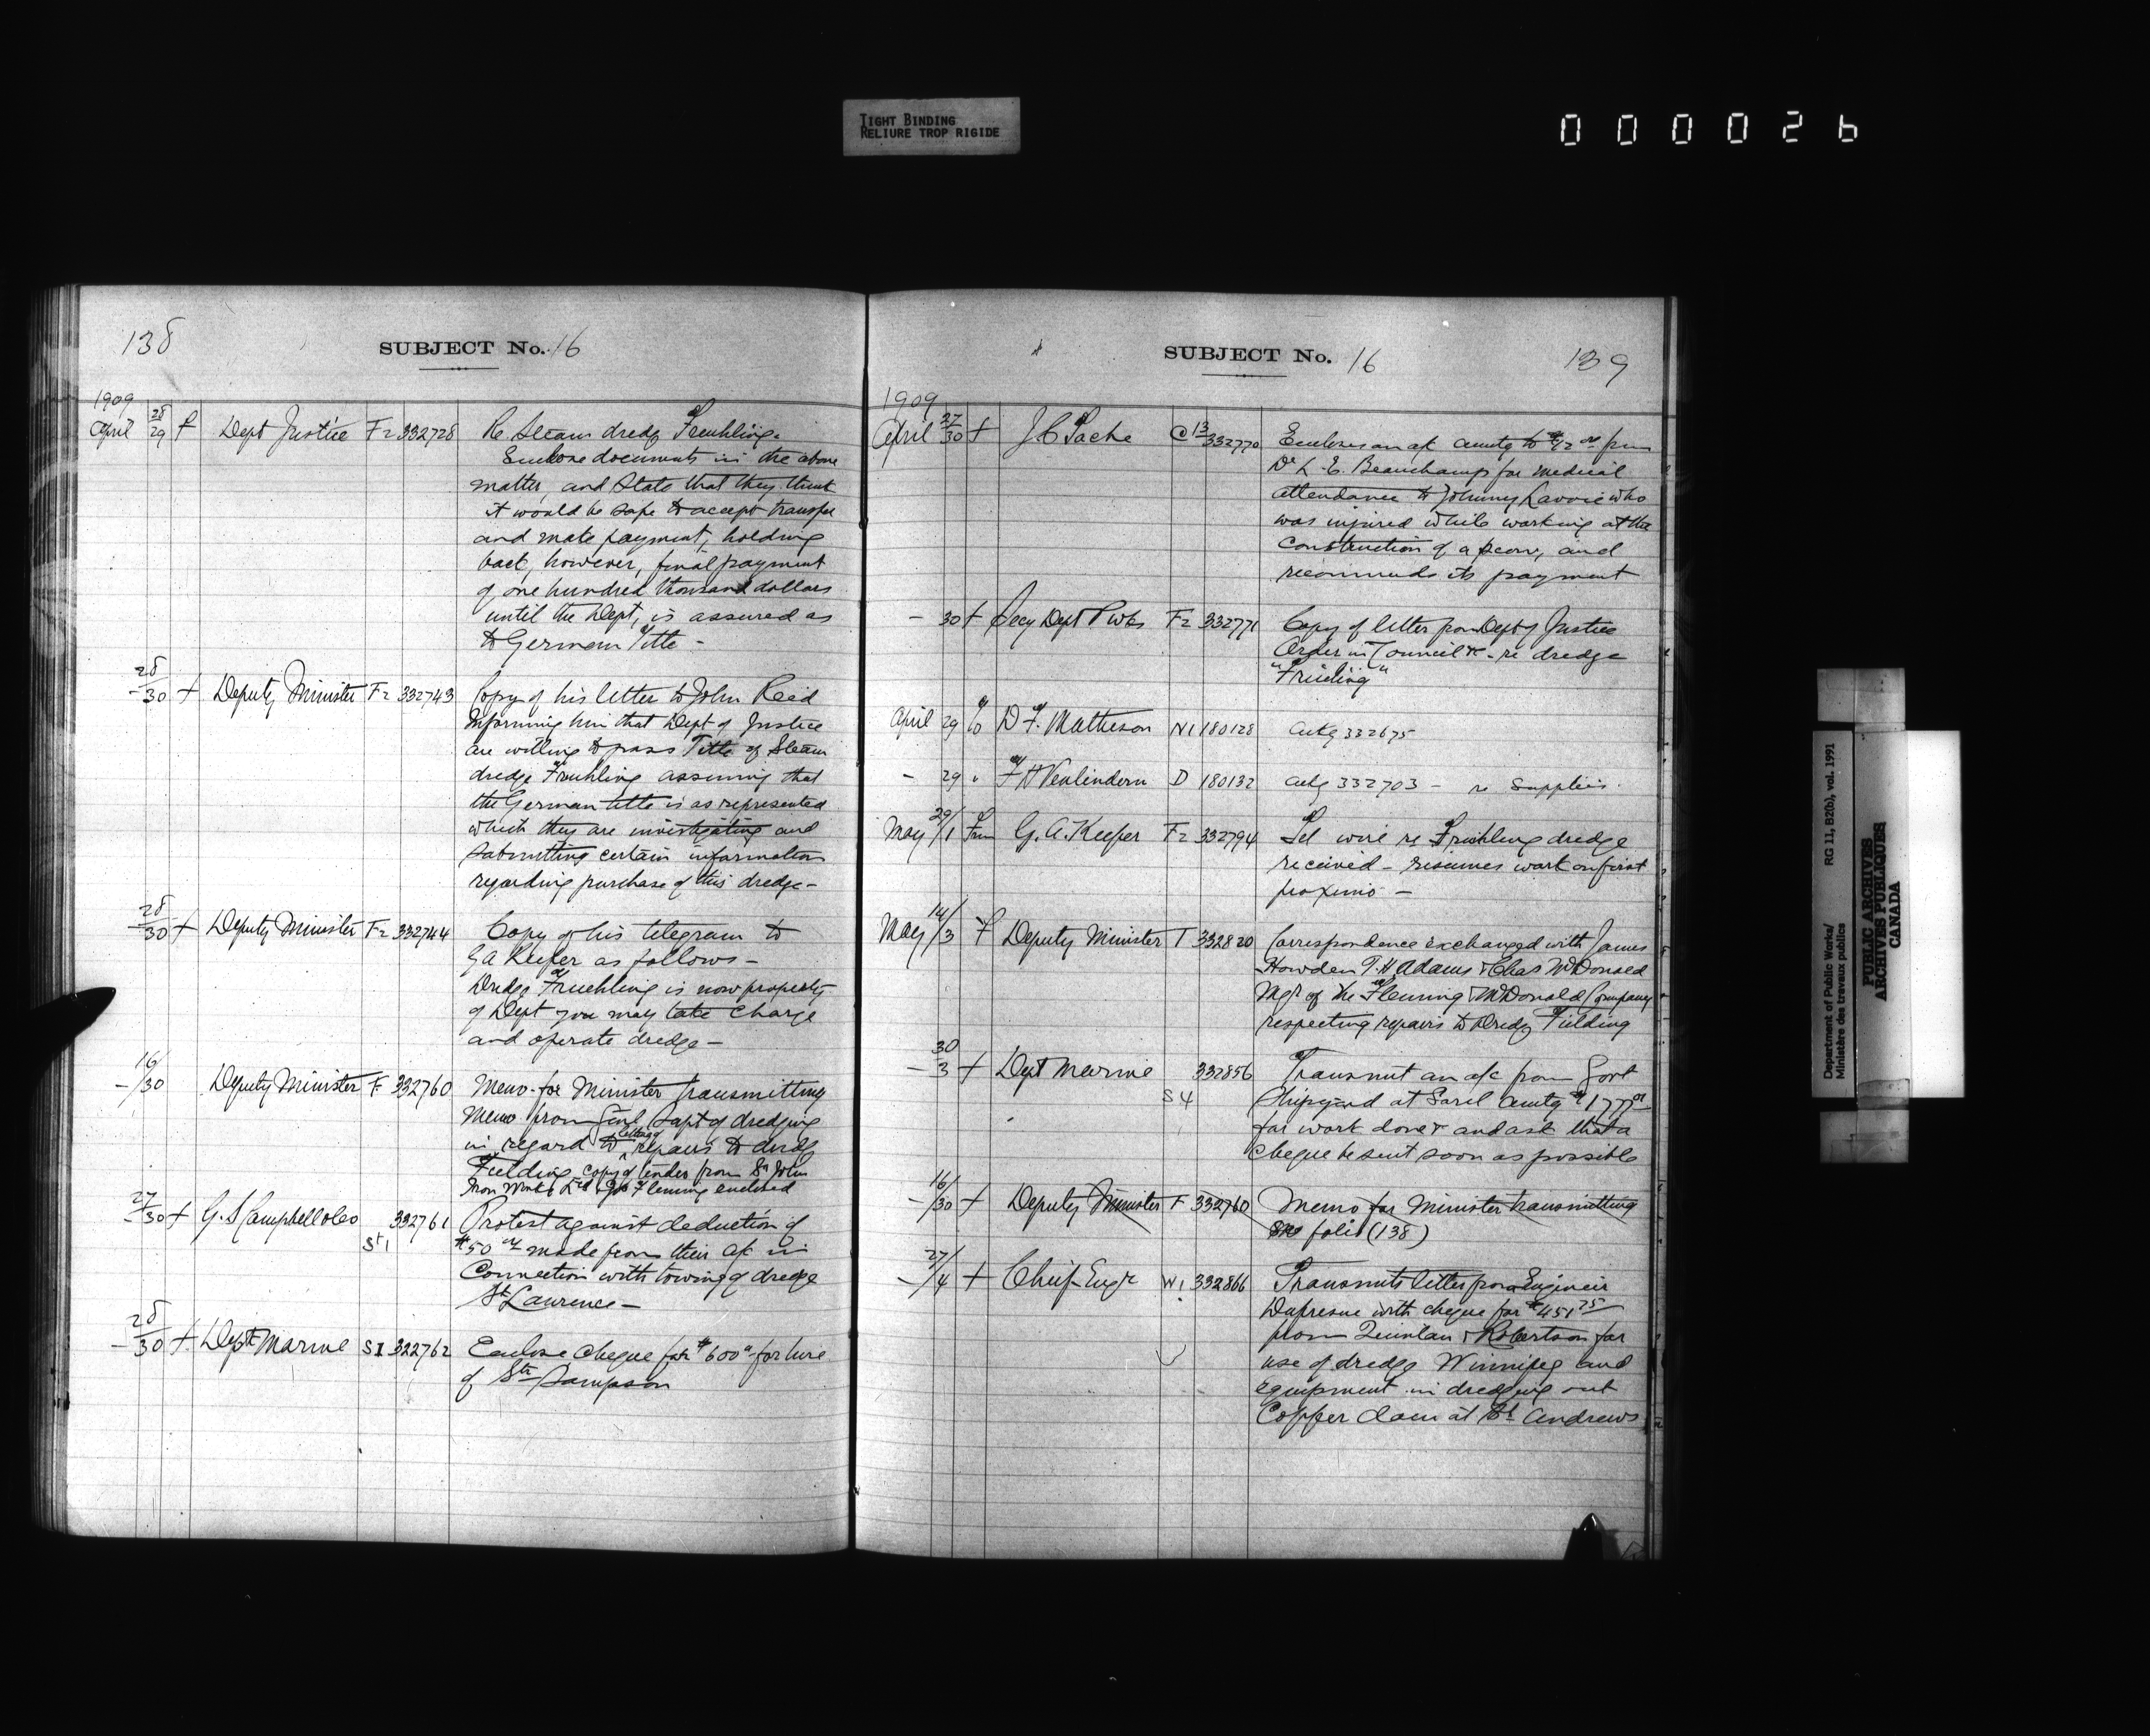 TIGHT BINDING
RELIURE TROP RIGIDE
000026
138
SUBJECT No. 16
1909
April 28/29 f Dept Justice F2 332728 Re Steam dredg Fruhling.
Enclose documents in the above
matter, and State that they think
it would be safe to accept transfer
and make payment, holding
back, however, final payment
of one hundred thousand dollars
until the Dept, is assured as
to German Title -
- 28/30 f Deputy Minister F2 332743 Copy of his letter to John Reid
informing him that Dept of Justice
are willing to pass Title of Steam
dredge Fruhling assuming that
the German title is as represented
which they are investigating and
submitting certain information
regarding purchase of this dredge -
- 28/30 f Deputy Minister F2 332744 Copy of his telegram to
G A Keefer as follows -
Dredge Fruehling is now property
of Dept you may take charge
and operate dredge -
- 16/30 Deputy Minister F 332760 Memo for Minister transmitting
Memo from Genl Supt of dredging
in regard to repairs to dredg
Fielding copy of tender from St John
Iron Works Ltd & Jas Fleming enclosed
- 27/30 f G. S Campbell & Co St 1 332761 Protest against deduction of
$50 00 made from their a/c in
Connection with towing of dredge
St Lawrence -
- 28/30 f. Dept Marine S1 322762 Enclose Cheque for $600 00 for hire
of Str Sampson
SUBJECT No. 16
139
1909
April 27/30 f J C Tache C 13 332770 Encloses an a/c amtg to $42 00 from
Dr L. E. Beauchamp for medical
attendance to Johnny Lavoie who
was injured while working at the
Construction of a scow, and
recommends its payment
- 30 f Secy Dept P Wks F2 332771 Copy of letter from Dept of Justice
Order in Council &c - re dredge
"Fruling"
April 29 to D F. Matheson N1 180128 Ackg 332675
- 29 " F H Venlindern D 180132 Ackg 332703 - re Supplies.
May 29/1 From G. A. Keefer F2 332794 Tel wire re Fruhling dredge
received - resumes work on first
proximo -
May 14/3 f Deputy Minister T 332820 Correspondence exchanged with James
Howden T. H Adams & Chas McDonald
Mgr of the Fleming & McDonald Company
respecting repairs to Dredg Fielding
- 30/3 f Dept Marine S4 332856 Transmit an a/c from Govt
Shipyard at Sorel amtg $177 01
for work done & and ask that a
cheque be sent soon as possible
- 16/30 f Deputy Minister F 332760 Memo for Minister transmitting
See folio (138)
- 27/4 f Chief Engr W1 332866 Transmits letter from Engineer
Dufresne with cheque for $451 75
from Quinlan & Robertson for
use of dredge Winnipeg and
equipment in dredging out
Copper dam at St Andrews
Department of Public Works/
Ministère des travaux publics
RG 11, B2(b), vol. 1991
PUBLIC ARCHIVES
ARCHIVES PUBLIQUES
CANADA